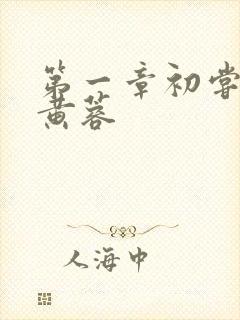 第一章初尝
黄蓉
人海中